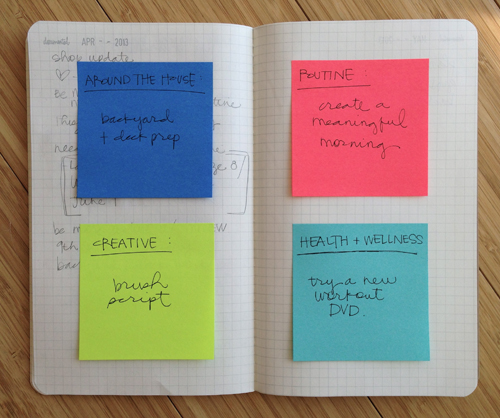 APR 2013
shop update
be m
need
June 1
be m W
9th
AROUND THE HOUSE:
backyard
+ deck prep
CREATIVE:
brush
script
ROUTINE:
create a
meaningful
morning
HEALTH + WELLNESS
try a new
workout
DVD.